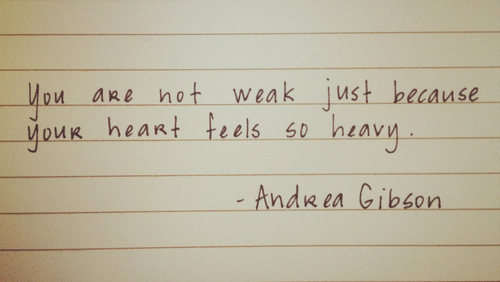 You are not weak just because
your heart feels so heavy.
- Andrea Gibson